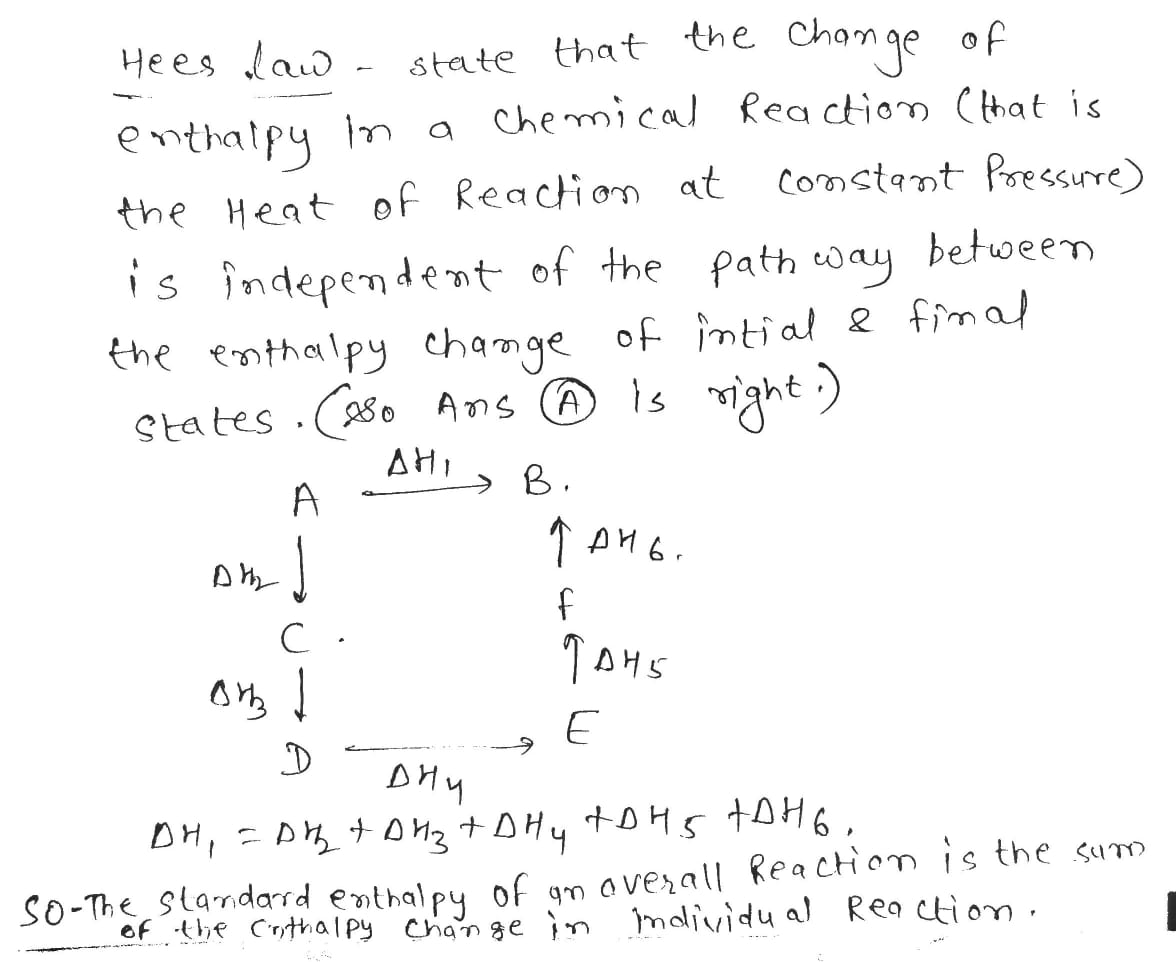 Hees law - state that the change of
enthalpy In a chemical Reaction (that is
the Heat of Reaction at constant Pressure)
is independent of the path way between
the enthalpy change of intial & final
states. (so Ans (A) Is right.)
A ΔH1 → B.
ΔH2 ↓ ↑ ΔH6.
C. f
ΔH3 ↓ ↑ ΔH5
D → E
ΔH4
ΔH1 = ΔH2 + ΔH3 + ΔH4 + ΔH5 + ΔH6.
SO-The standard enthalpy of an overall Reaction is the sum
of the Enthalpy change in individual Reaction.